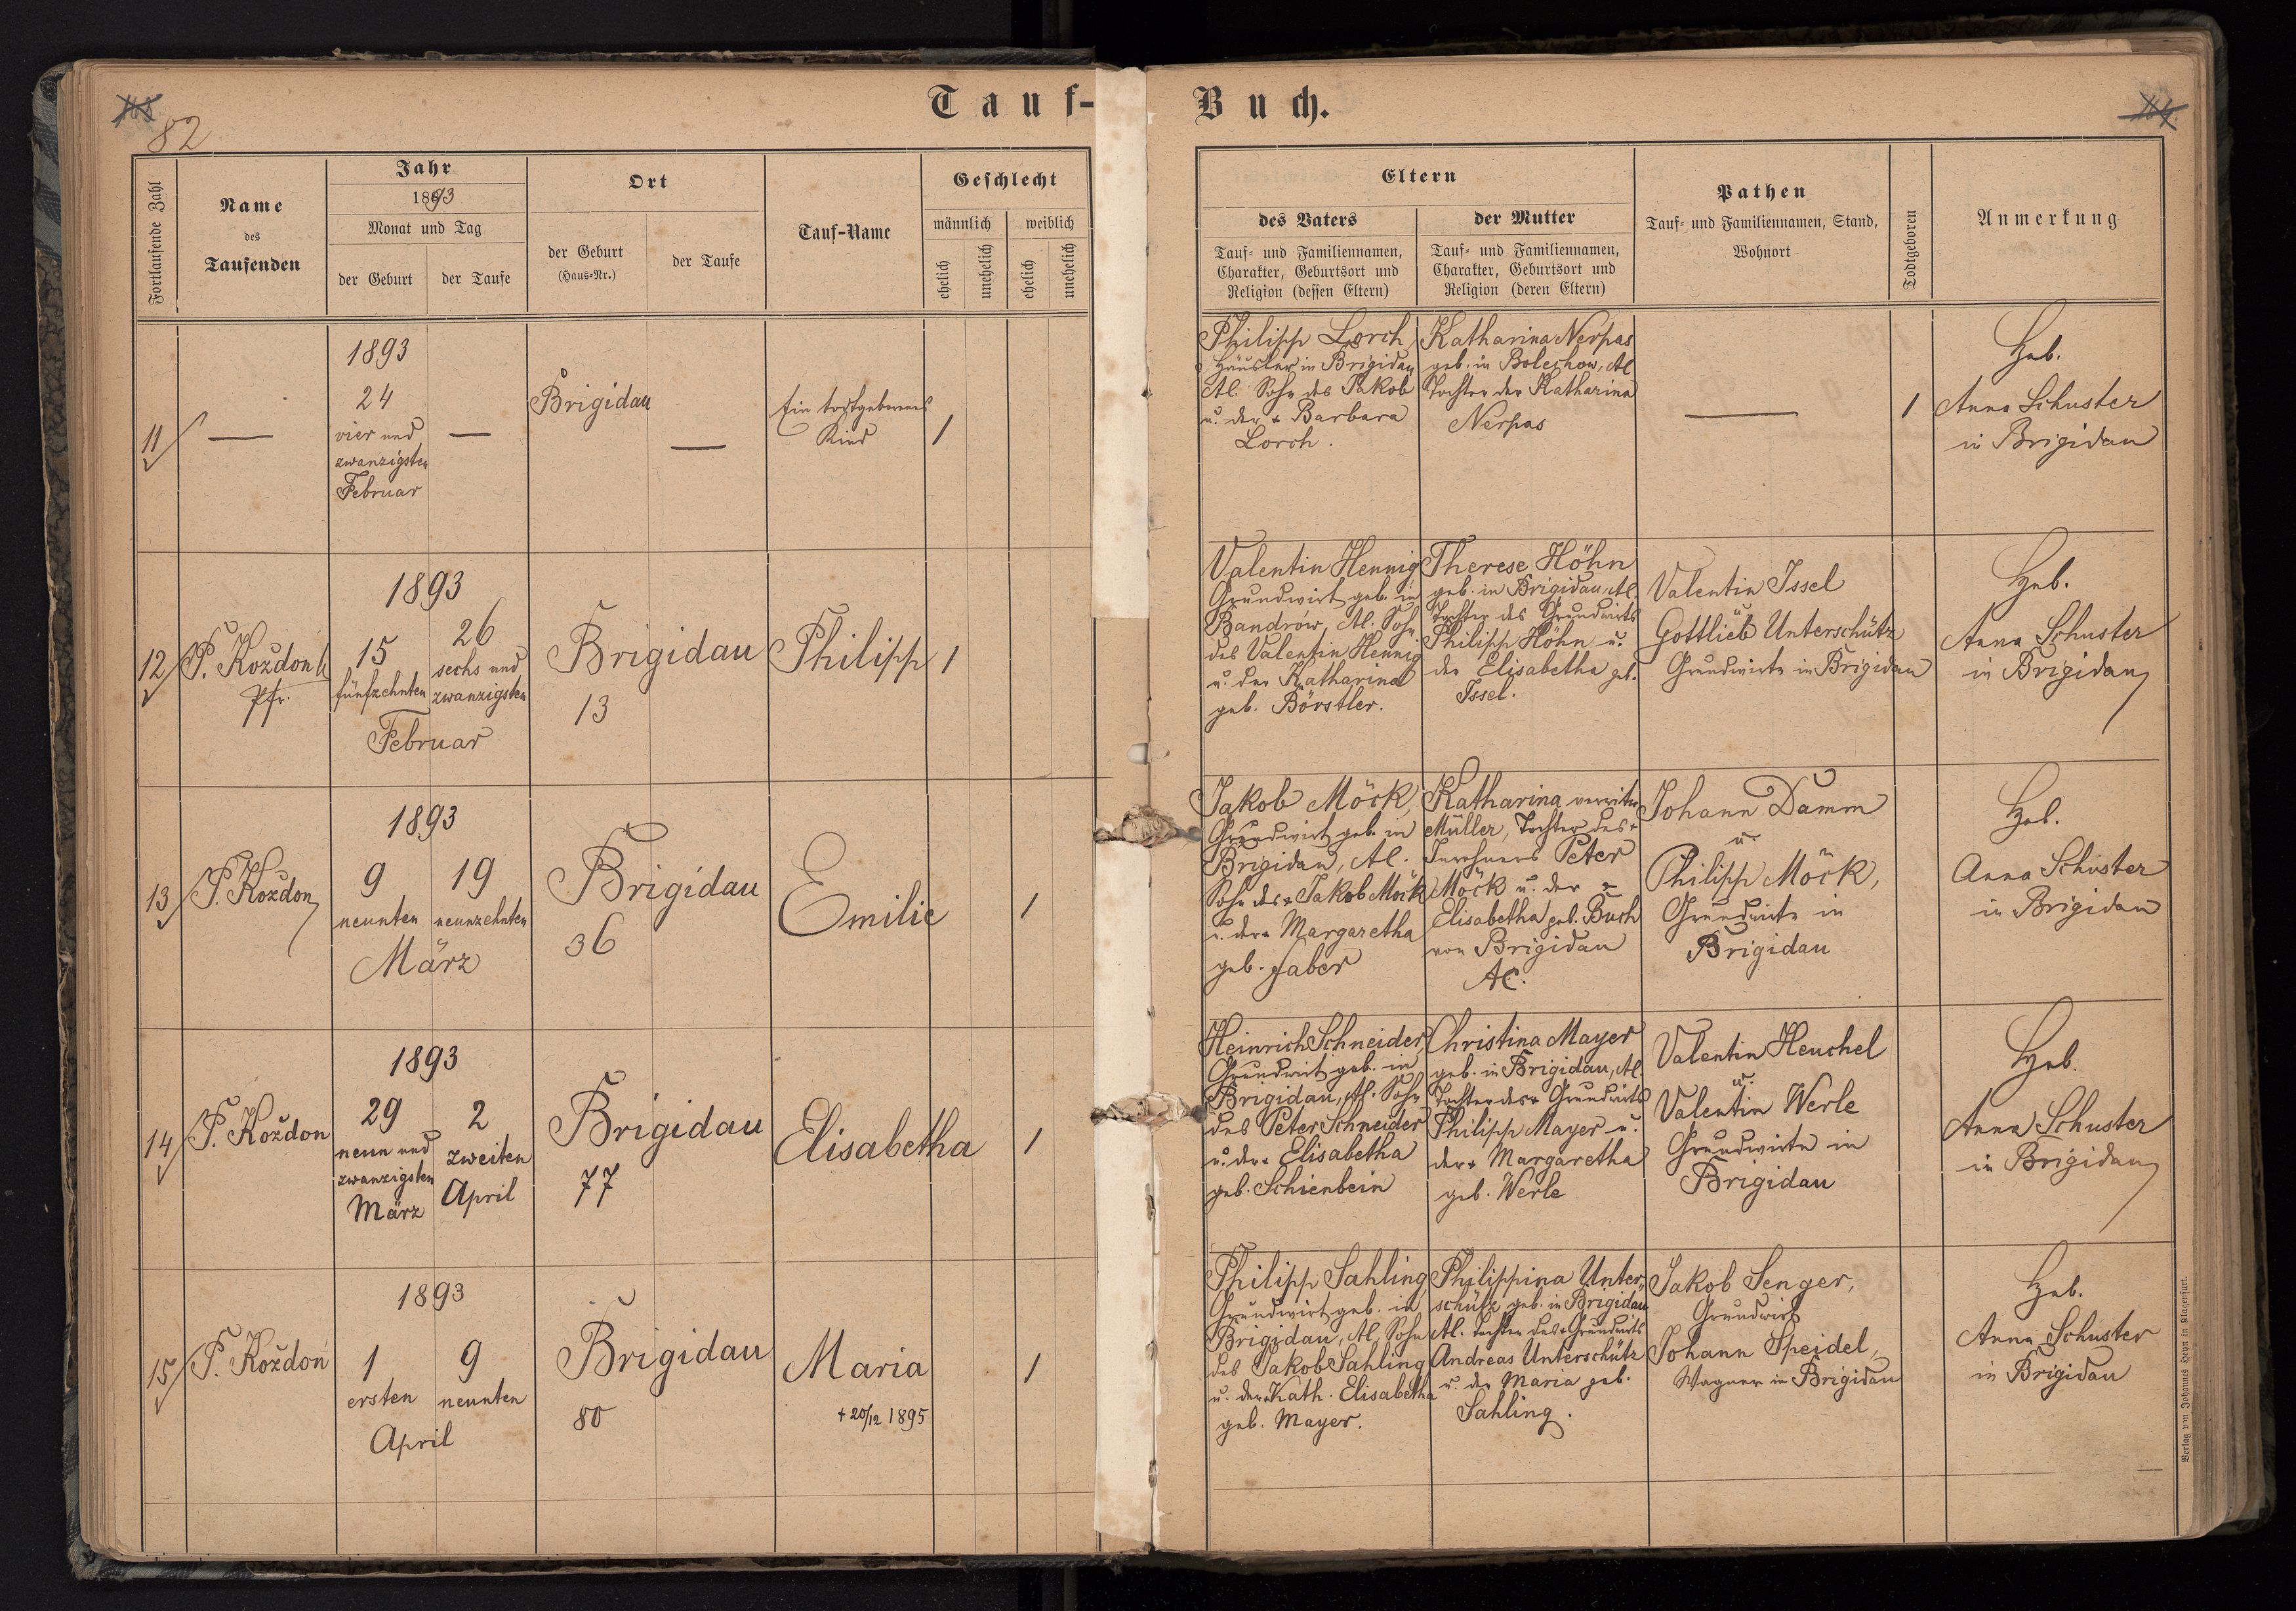 82
Tauf-Buch.
Fortlaufende Zahl
Name
des
Taufenden
Jahr
1893
Monat und Tag
der Geburt
der Taufe
Ort
der Geburt
(Haus-Nr.)
der Taufe
Tauf-Name
Geschlecht
männlich
weiblich
ehelich
unehelich
ehelich
unehelich
Eltern
des Vaters
Tauf- und Familiennamen,
Charakter, Geburtsort und
Religion (dessen Eltern)
der Mutter
Tauf- und Familiennamen,
Charakter, Geburtsort und
Religion (deren Eltern)
Pathen
Tauf- und Familiennamen, Stand,
Wohnort
Todtgeboren
Anmerkung
11
—
1893
24
vier und
zwanzigsten
Februar
—
Brigidau
—
Ein todtgeborenes
Kind
1
Philipp Lorch
Häusler in Brigidau
AC. Sohn des Jakob
u. der + Barbara
Lorch.
Katharina Nerpas
geb. in Bolechow, AC
Tochter der Katharina
Nerpas
—
1
Heb.
Anna Schuster
in Brigidau
12
P. Kozdon
Pfr.
1893
15
fünfzehnten
26
sechs und
zwanzigsten
Februar
Brigidau
13
Philipp
1
Valentin Hennig
Grundwirt geb. in
Bandrow, AC. Sohn
des Valentin Hennig
u. der Katharina
geb. Börstler.
Therese Höhn
geb. in Brigidau, AC.
Tochter des Grundwirts
Philipp Höhn u.
der Elisabetha geb.
Issel.
Valentin Issel
u.
Gottlieb Unterschütz
Grundwirte in Brigidau
Heb.
Anna Schuster
in Brigidau
13
P. Kozdon
1893
9
neunten
19
neunzehnten
März
Brigidau
36
Emilie
1
Jakob Möck,
Grundwirt geb. in
Brigidau, AC.
Sohn des + Jakob Möck
u. der + Margaretha
geb. Faber
Katharina verwitw
Müller, Tochter des +
Inwohners Peter
Möck u. der +
Elisabetha geb. Buch
von Brigidau
AC.
Johann Damm
u.
Philipp Möck,
Grundwirte in
Brigidau
Heb.
Anna Schuster
in Brigidau
14
P. Kozdon
1893
29
neun und
zwanzigsten
März
2
zweiten
April
Brigidau
77
Elisabetha
1
Heinrich Schneider,
Grundwirt geb. in
Brigidau, AC. Sohn
des Peter Schneider
u. der + Elisabetha
geb. Schienbein
Christina Mayer
geb. in Brigidau, AC.
Tochter des + Grundwirts
Philipp Mayer u.
der + Margaretha
geb. Werle
Valentin Heuchel
u.
Valentin Werle
Grundwirte in
Brigidau
Heb.
Anna Schuster
in Brigidau
15
P. Kozdon
1893
1
ersten
9
neunten
April
Brigidau
80
Maria
+ 20/12 1895
1
Philipp Sahling,
Grundwirt geb. in
Brigidau, AC Sohn
des Jakob Sahling
u. der + Kath. Elisabetha
geb. Mayer.
Philippina Unter-
schütz geb. in Brigidau
AC. Tochter des + Grundwirts
Andreas Unterschütz
u. der Maria geb.
Sahling.
Jakob Senger,
Grundwirt
Johann Speidel,
Wagner in Brigidau
Heb.
Anna Schuster
in Brigidau
Verlag von Johannes Heyn in Klagenfurt.